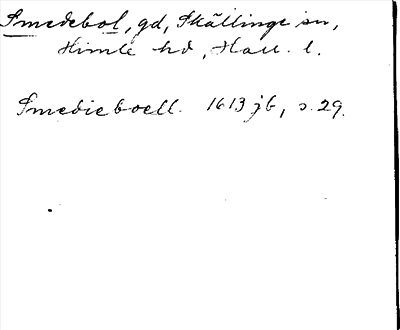 Smedebol, gd, Skällinge sn,
Himle hd, Hall. l.
Smedieboell. 1613 jb, s. 29.